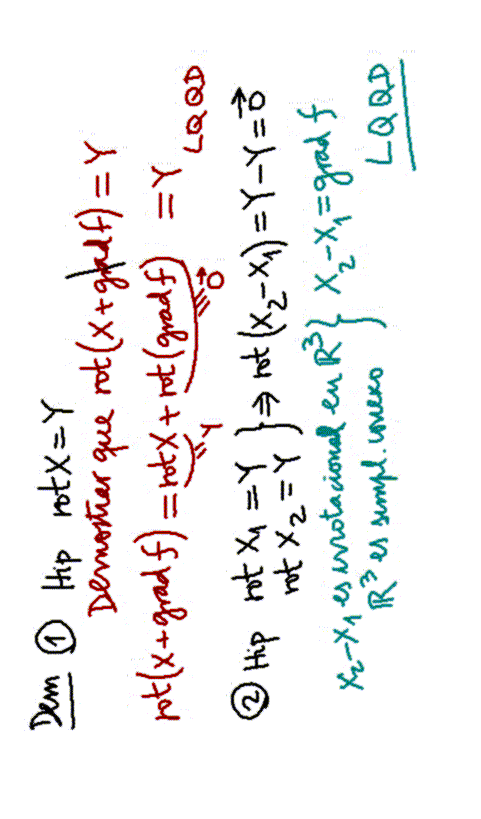 Dem ① Hip rot X = Y
Demostrar que rot(X + grad f) = Y
rot(X + grad f) = rot X + rot(grad f) = Y
Y 0⃗ LQQD
② Hip rot X₁ = Y
rot X₂ = Y } ⇒ rot(X₂ - X₁) = Y - Y = 0⃗
X₂ - X₁ es irrotacional en ℝ³
ℝ³ es simpl. conexo } X₂ - X₁ = grad f
LQQD